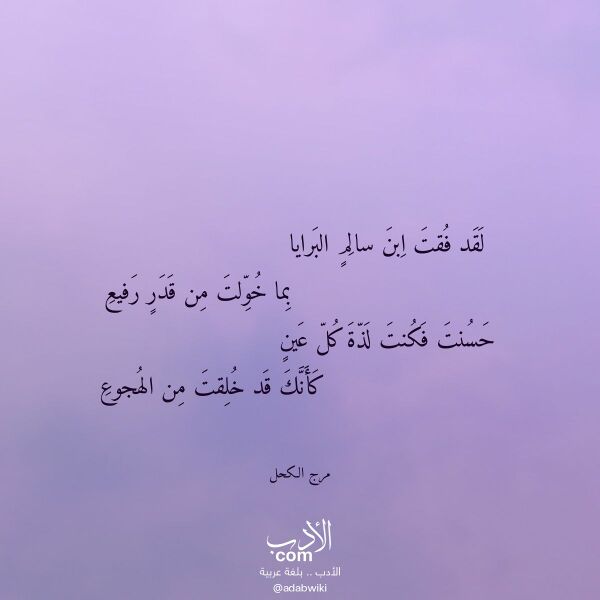 لَقَد فُقتَ اِبنَ سالِمٍ البَرايا
بِما خُوِّلتَ مِن قَدَرٍ رَفيعِ
حَسُنتَ فَكُنتَ لَذّةَ كُلّ عَينٍ
كَأَنَّكَ قَد خُلِقتَ مِن الهُجوعِ
مرج الكحل
الأدب
com
الأدب .. بلغة عربية
@adabwiki